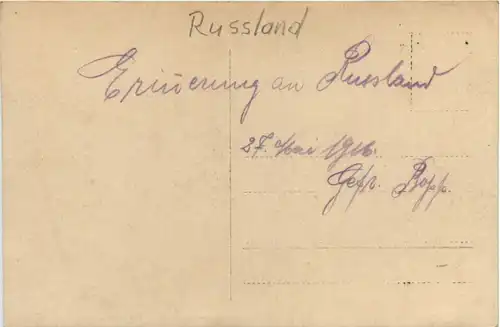 Russland
Eriuerung an Russland
27. Mai 1916.
Gefr. Bopp.